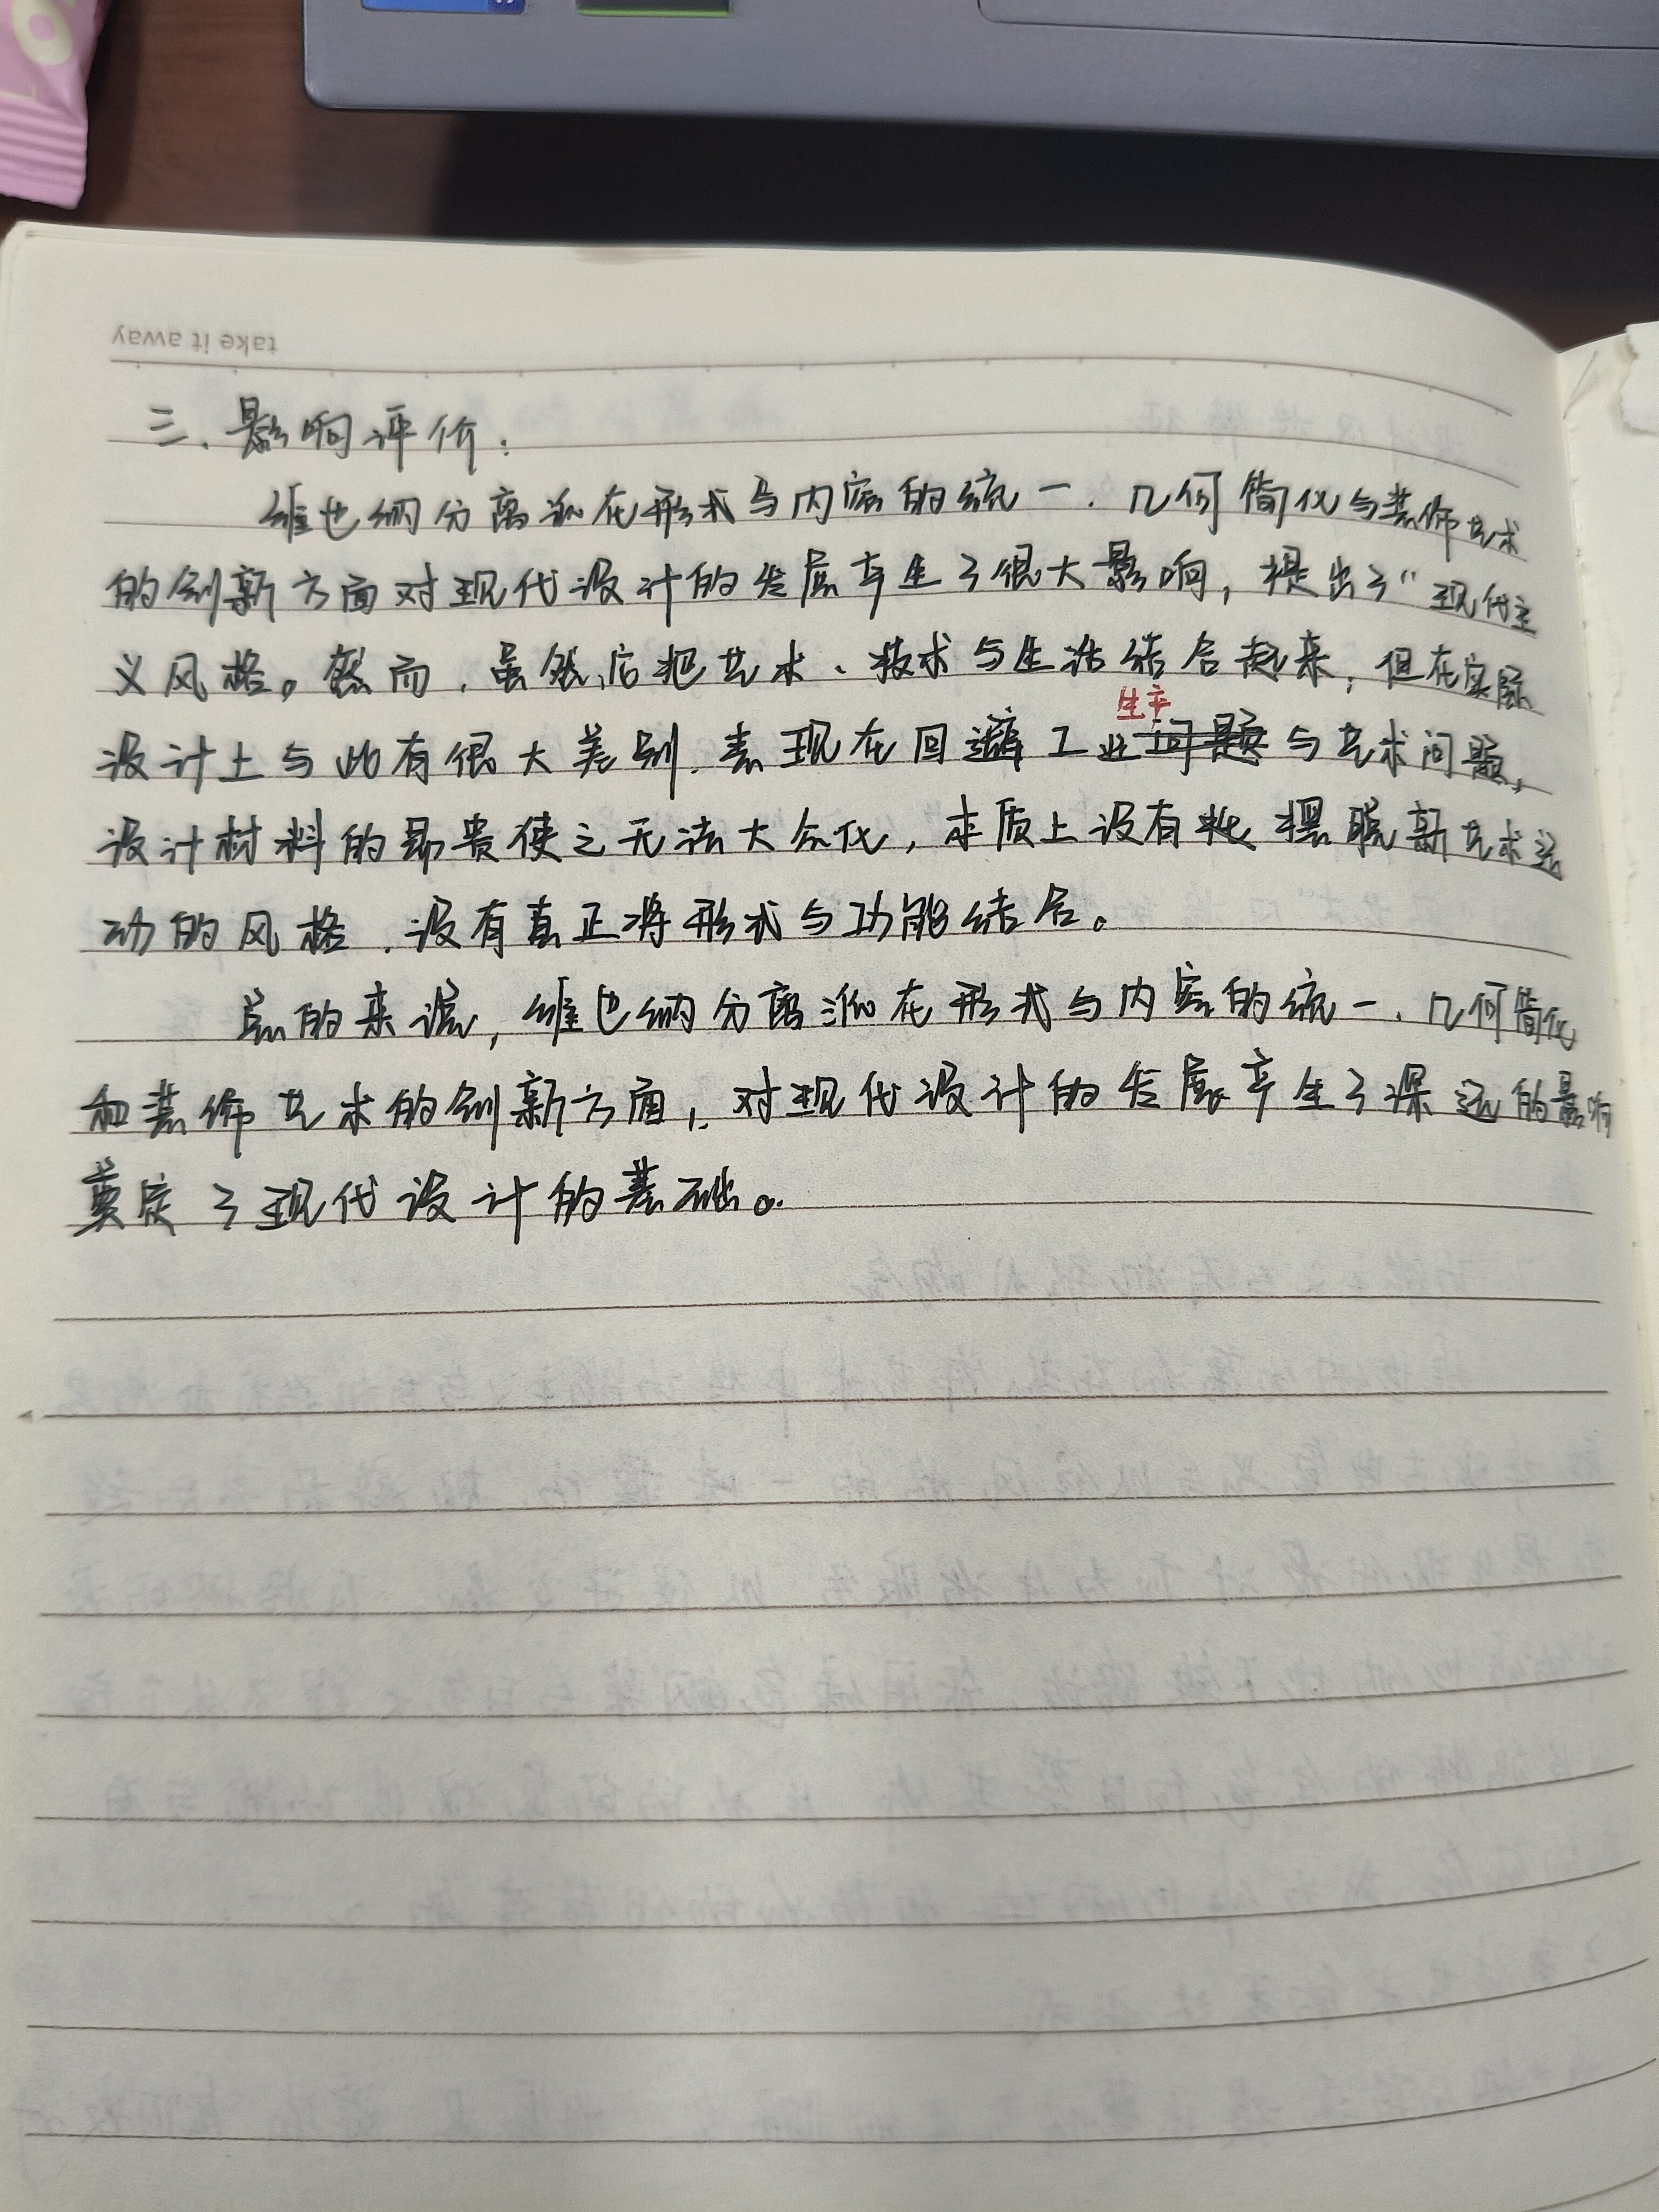 take it away
三、影响评价:
维也纳分离派在形式与内容的统一、几何简化与装饰艺术
的创新方面对现代设计的发展产生了很大影响,提出了“现代主
义风格。然而,虽然后把艺术、技术与生活结合起来,但在实际
设计上与此有很大差别,表现在回避工业生产与艺术问题,
设计材料的昂贵使之无法大众化,本质上没有摆脱新艺术运
动的风格,没有真正将形式与功能结合。
总的来说,维也纳分离派在形式与内容的统一、几何简化
和装饰艺术的创新方面,对现代设计的发展产生了深远的影响
奠定了现代设计的基础。